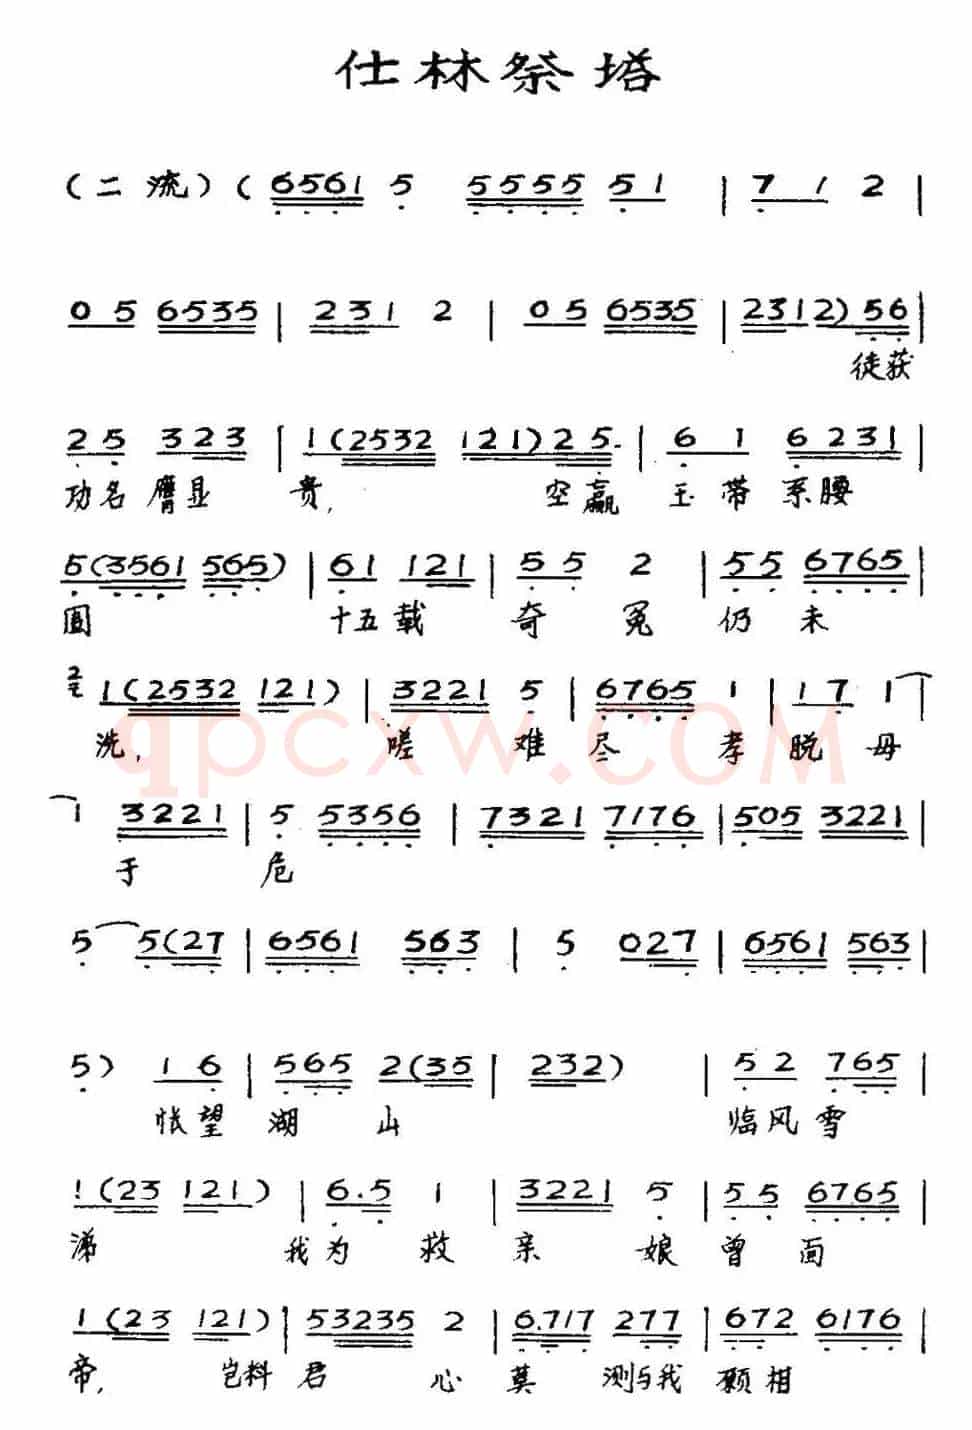 仕林祭塔
(二流) ( 6561 5 5555 51 | 7 1 2 |
0 5 6535 | 231 2 | 0 5 6535 | 2312) 56 |
徒获
25 323 | 1(2532 121) 25. | 6 1 6231 |
功名膺显贵, 空赢玉带系腰
5(3561 565) | 61 121 | 55 2 | 55 6765 |
圆 十五载奇冤仍未
1(2532 121) | 3221 5 | 6765 1 | 17 1 |
洗, 嗟难尽孝脱母
1 3221 | 5 5356 | 7321 7176 | 505 3221 |
于危
5 5(27 | 6561 563 | 5 027 | 6561 563 |
5) 16 | 565 2(35 | 232) | 52 765 |
怅望湖山 临风雪
1(23 121) | 6.5 1 | 3221 5 | 55 6765 |
涕 我为救亲娘曾面
1(23 121) | 53235 2 | 6.717 277 | 672 6176 |
帝, 岂料君心莫测与我愿相
qpcxw.COM